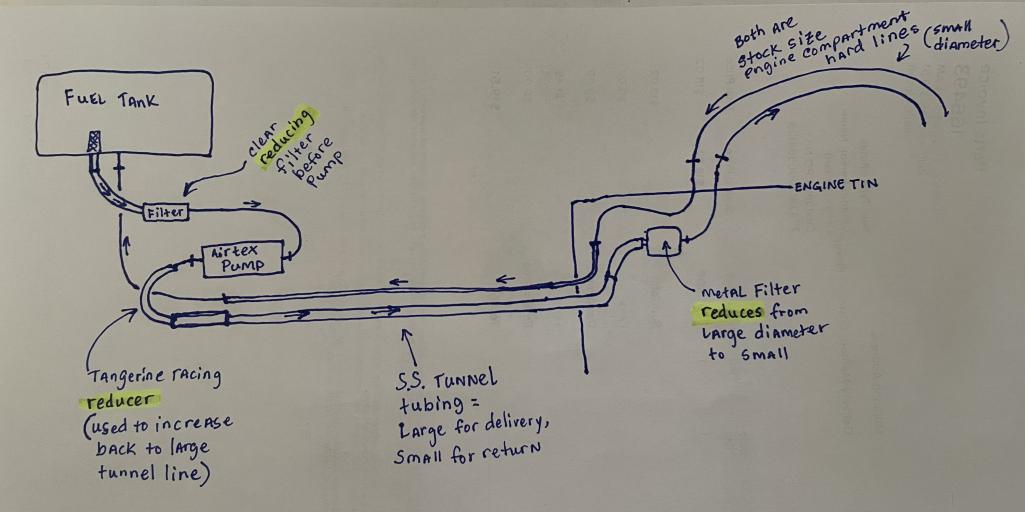 FUEL TANK
clear
reducing
filter
before
Pump
Filter
Airtex
Pump
Both Are
stock size
engine compartment
hard lines
(small
diameter)
ENGINE TIN
Metal Filter
reduces from
Large diameter
to small
Tangerine racing
reducer
(used to increase
back to large
tunnel line)
S.S. Tunnel
tubing =
Large for delivery,
Small for return